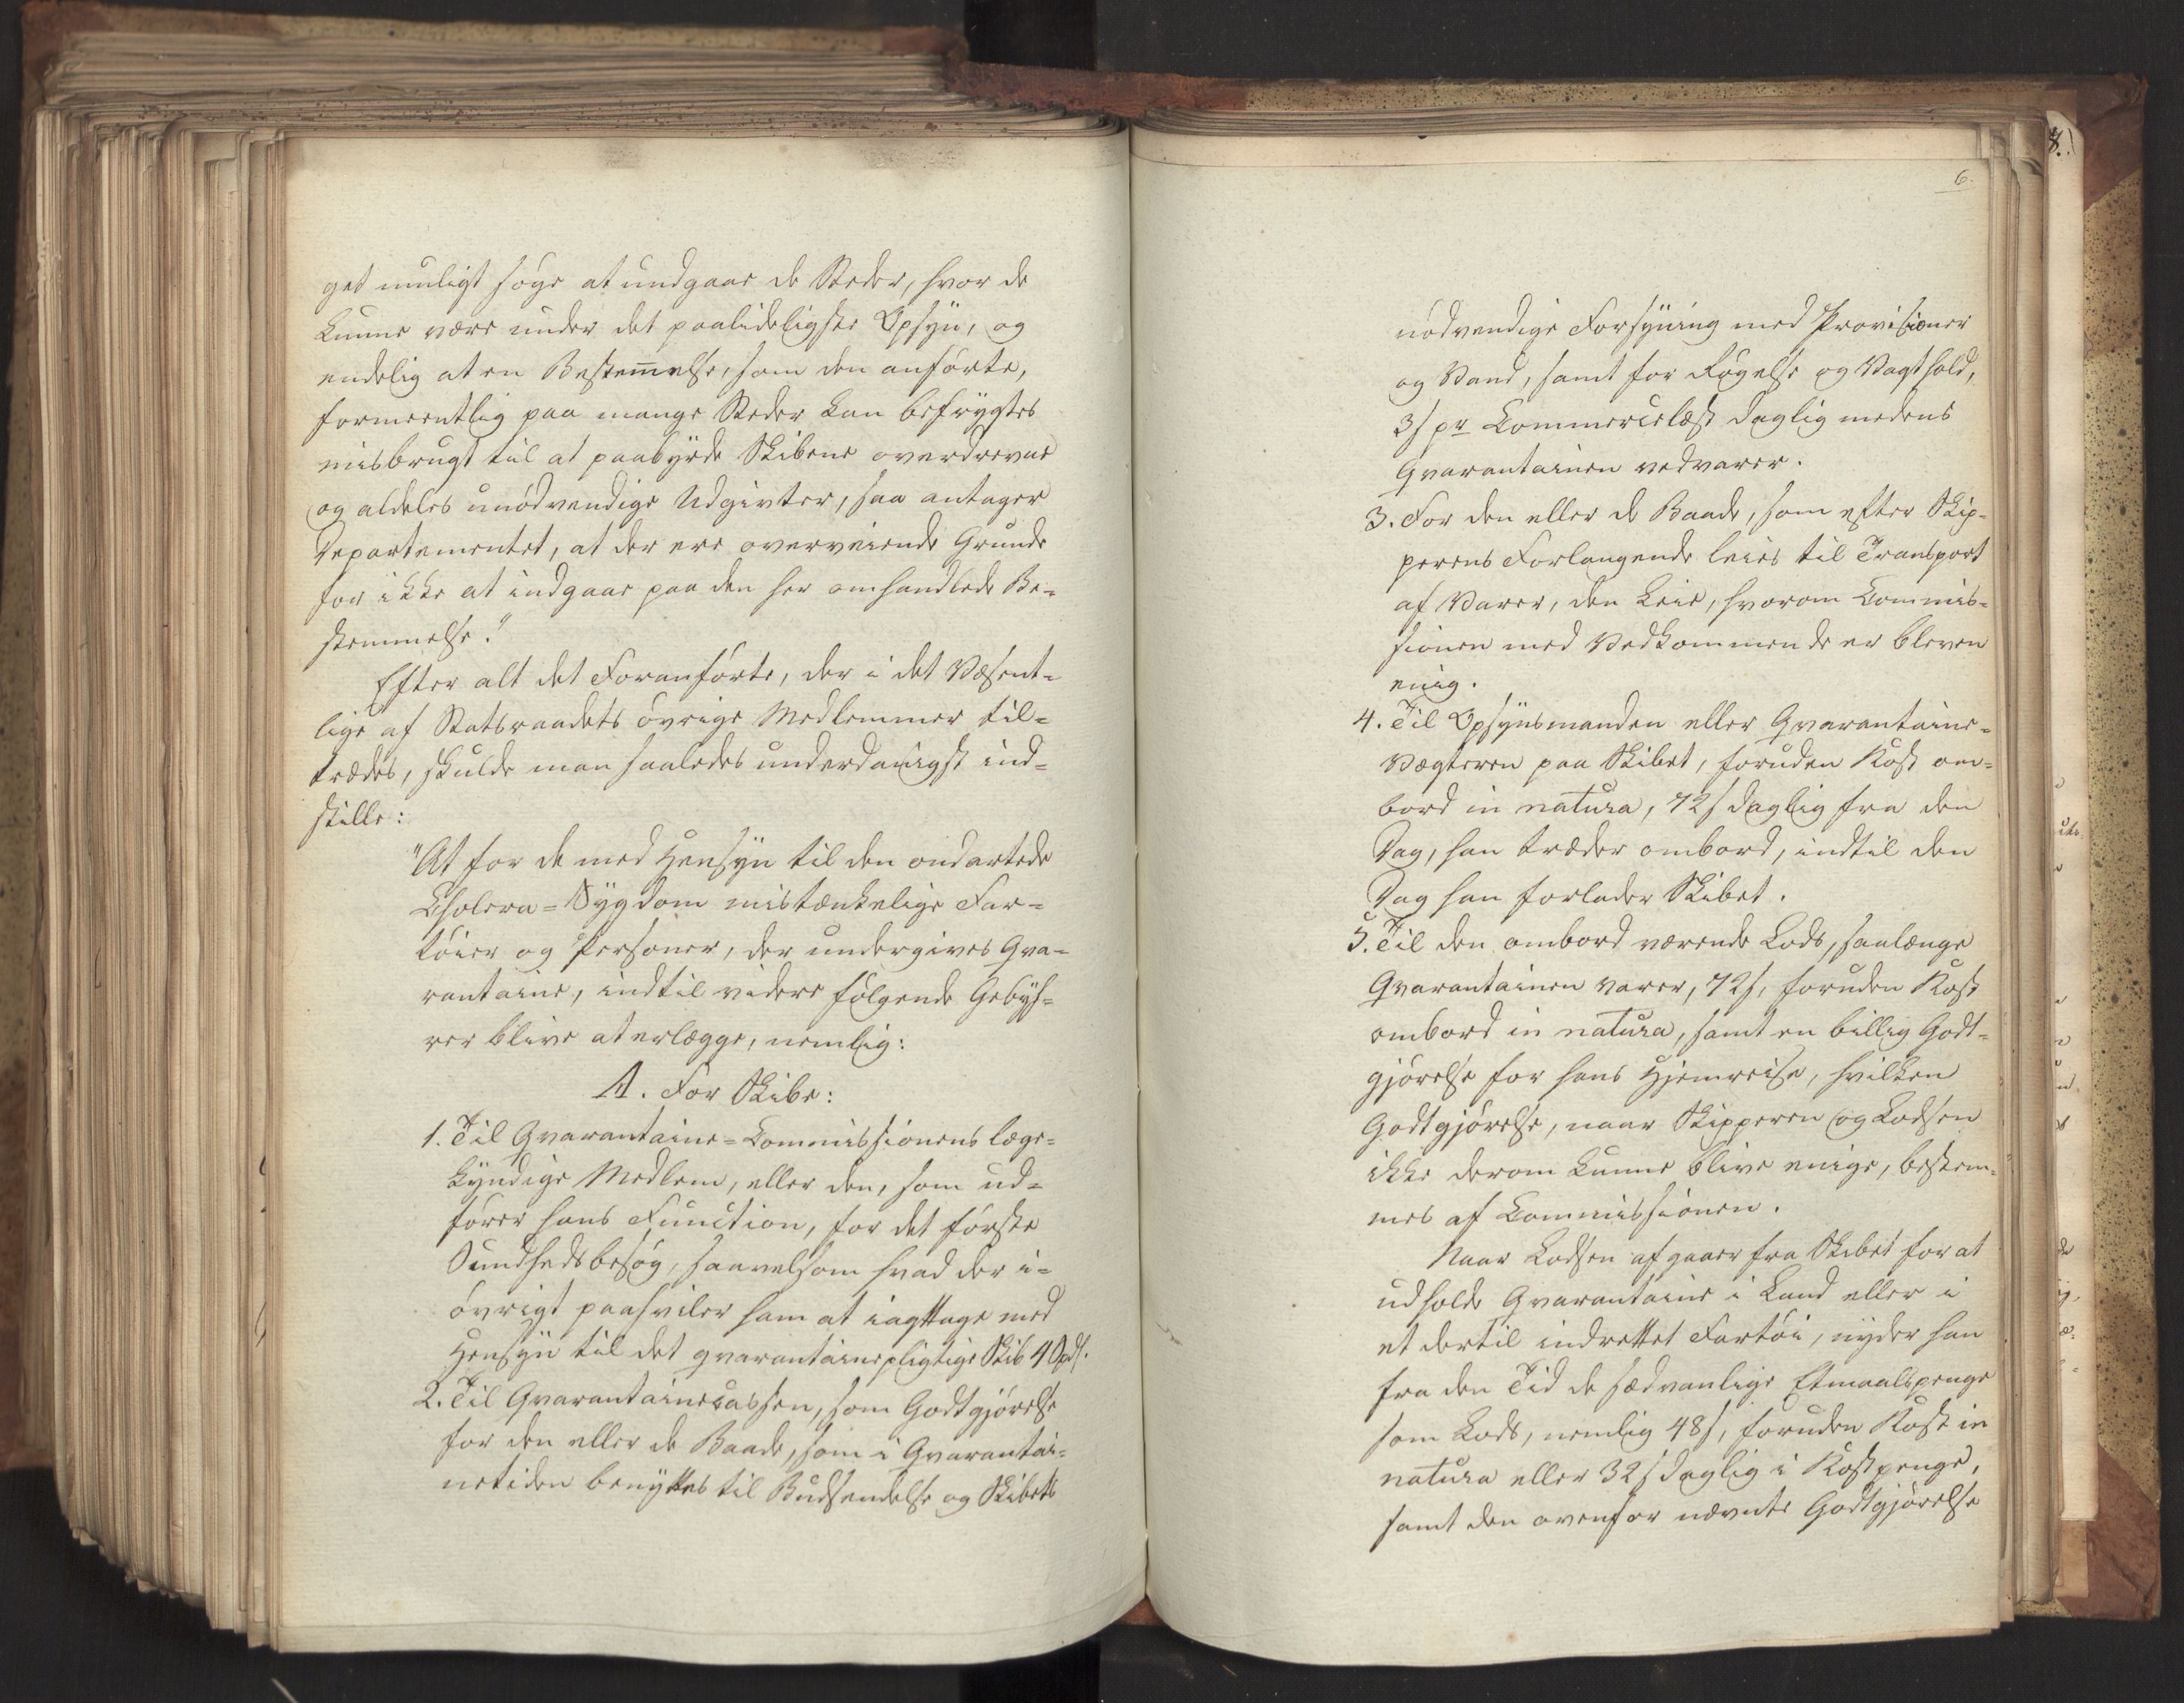 get muligt söge at undgaae de Steder, hvor de
kunne være under det paalideligste Opsyn, og
endelig at en Bestem̅else, som den anförte,
formeentlig paa mange Steder kan befrygtes
misbrugt til at paabyrde Skibene overdrevne
og aldeles unödvendige Udgivter, saa antager
Departementet, at der ere overveiende Grunde
for ikke at indgaae paa den her omhandlede Be-
stemmelse."
Efter alt det Foranförte, der i det Væsent-
lige af Statsraadets övrige Medlemmer til-
trædes, skulde man saaledes underdanigst ind-
stille:
"At for de med Hensyn til den ondartede
Cholera-Sygdom mistænkelige Far-
töier og Personer, der undergives Qva-
rantaine, indtil videre fölgende Gebyh-
rer blive at erlægge, nemlig:
A. For Skibe:
1. Til Qvarantaine-Commissionens læge-
kyndige Medlem, eller den, som ud-
förer hans Function, for det förste
Sundhedsbesög, saavelsom hvad der i-
övrigt paahviler ham at iagttage med
Hensyn til det qvarantainepligtige Skib 4 Spd.
2. Til Qvarantainecassen, som Godtgjörelse
for den eller de Baade, som i Qvarantai-
netiden benyttes til Budsendelse og Skibets
6.
nödvendige Forsyning med Provisioner
og Vand, samt for Rögelse og Vagthold,
3 s pr Commercelæst daglig medens
Qvarantainen vedvarer.
3. For den eller de Baade, som efter Skip-
perens Forlangende leies til Transport
af Varer, den Leie, hvorom Commis-
sionen med Vedkommende er bleven
enig.
4. Til Opsynsmanden eller Qvarantaine-
Vægteren paa Skibet, foruden Kost om-
bord in natura, 72 s daglig fra den
Dag, han træder ombord, indtil den
Dag han forlader Skibet.
5. Til den ombord værende Lods, saalænge
Qvarantainen varer, 72 s, foruden Kost
ombord in natura, samt en billig Godt-
gjörelse for hans Hjemreise, hvilken
Godtgjörelse, naar Skipperen og Lodsen
ikke derom kunne blive enige, bestem-
mes af Commissionen.
Naar Lodsen afgaaer fra Skibet for at
udholde Qvarantaine i Land eller i
et dertil indrettet Fartöi, nyder han
fra den Tid de sædvanlige Etmaalspenge
som Lods, nemlig 48 s, foruden Kost in
natura eller 32 s daglig i Kostpenge,
samt den ovenfor nævnte Godtgjörelse